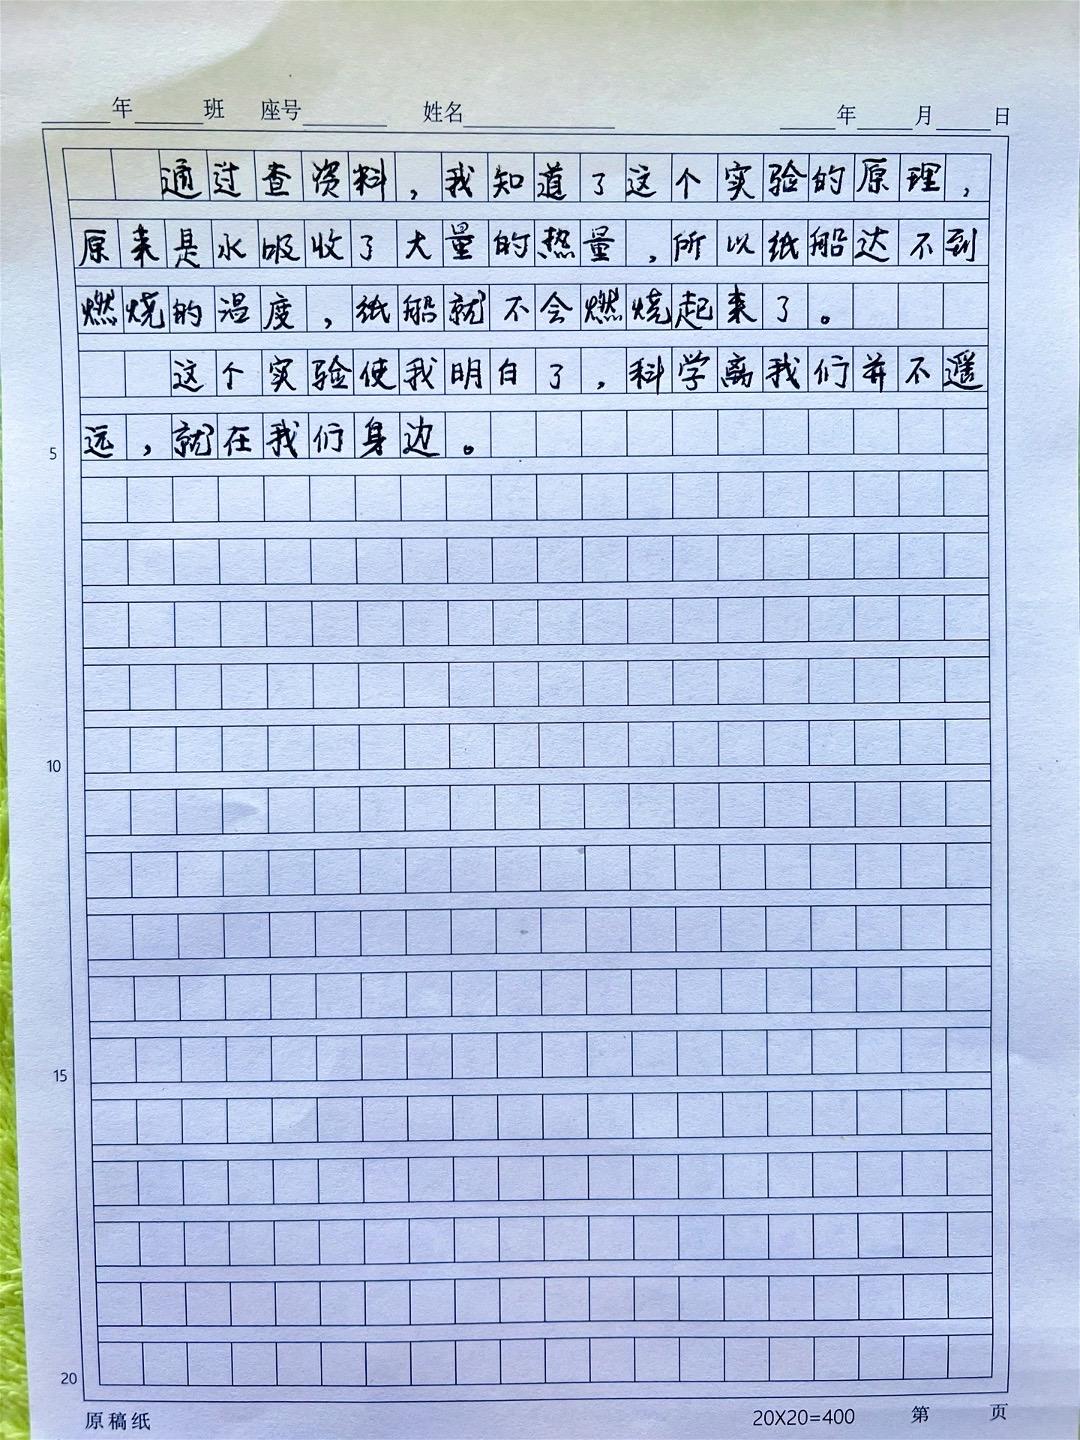 年 班 座号 姓名 年 月 日
通过查资料，我知道了这个实验的原理，
原来是水吸收了大量的热量，所以纸船达不到
燃烧的温度，纸船就不会燃烧起来了。
这个实验使我明白了，科学离我们并不遥
远，就在我们身边。
5
10
15
20
原稿纸 20X20=400 第 页